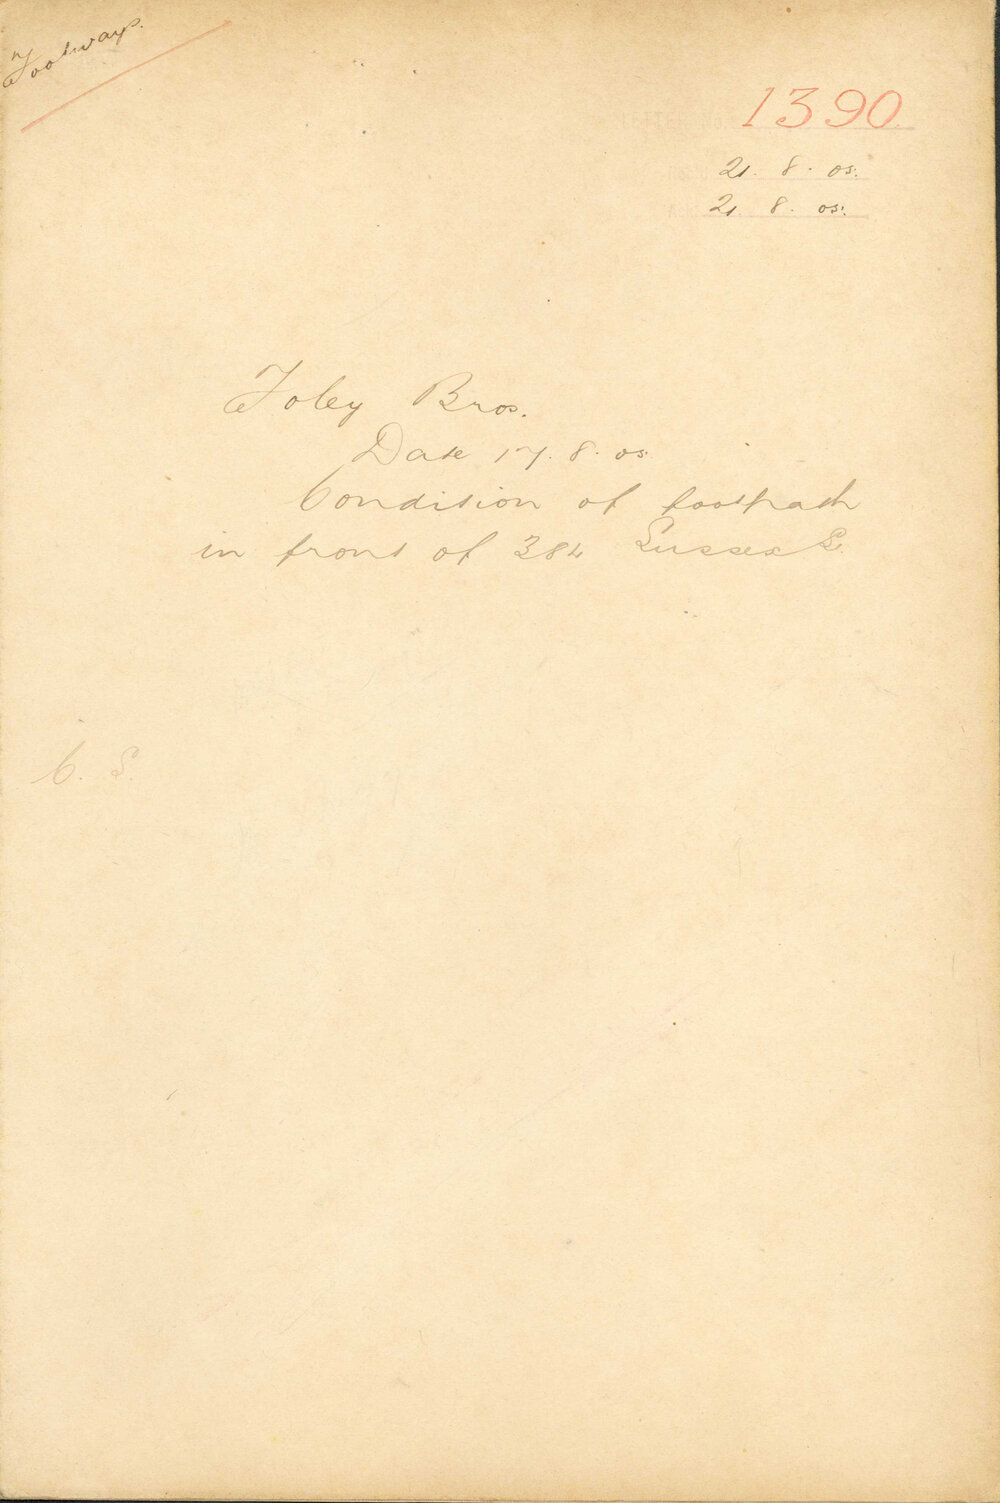 Footways.
1390
21. 8. 05.
21. 8. 05.
Foley Bros.
Date 17. 8. 05
Condition of footpath
in front of 384 Sussex St.
C. S.